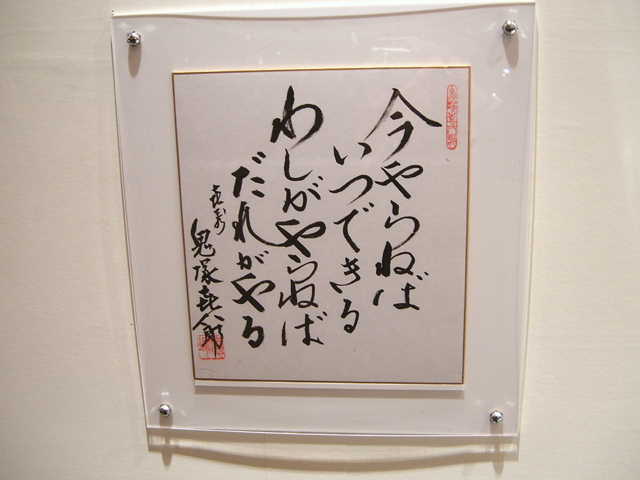 今やらねば
いつできる
わしがやらねば
だれがやる
喜寿
鬼塚喜八郎